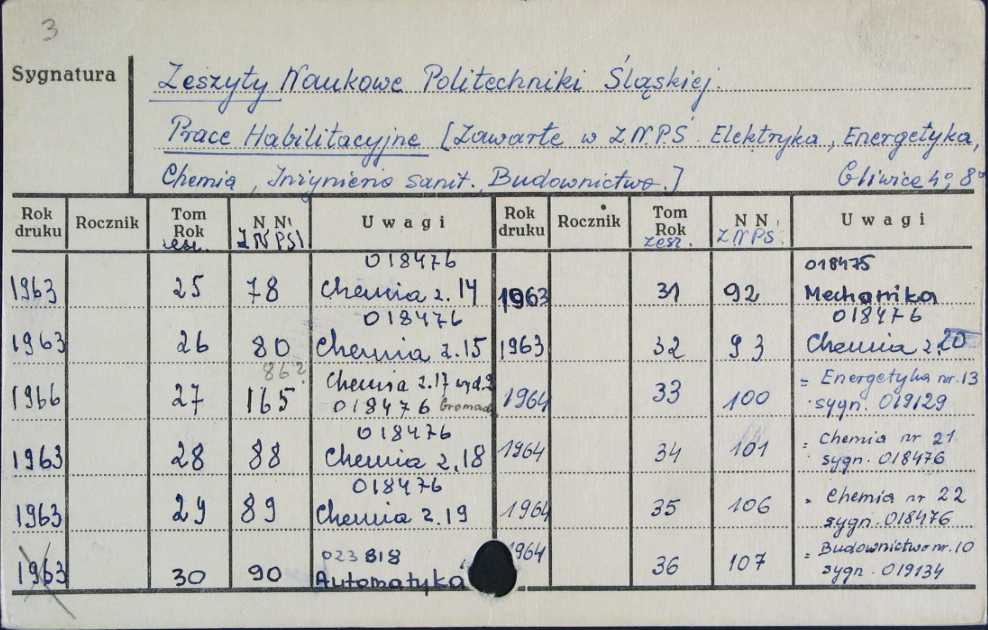 3
Sygnatura
Zeszyty Naukowe Politechniki Śląskiej.
Prace Habilitacyjne [Zawarte w Z.N.P.Ś. Elektryka, Energetyka,
Chemia, Inżynieria sanit., Budownictwo.] Gliwice 4°, 8°
Rok druku Rocznik Tom Rok zesz. N N ZNPŚ Uwagi Rok druku Rocznik Tom Rok zesz. N N ZNPŚ. Uwagi
1963 25 78 018476 Chemia z. 14 1963 31 92 018475 Mechanika
1963 26 80 018476 Chemia z. 15 1963 32 93 018476 Chemia z. 20
1966 27 86? 165 Chemia z. 17 018476 1964 33 100 = Energetyka nr. 13 sygn. 019129
1963 28 88 018476 Chemia z. 18 1964 34 101 = Chemia nr 21 sygn. 018476
1963 29 89 018476 Chemia z. 19 1964 35 106 = Chemia nr 22 sygn. 018476
1963 30 90 023818 Automatyka 1964 36 107 = Budownictwo nr. 10 sygn. 019134